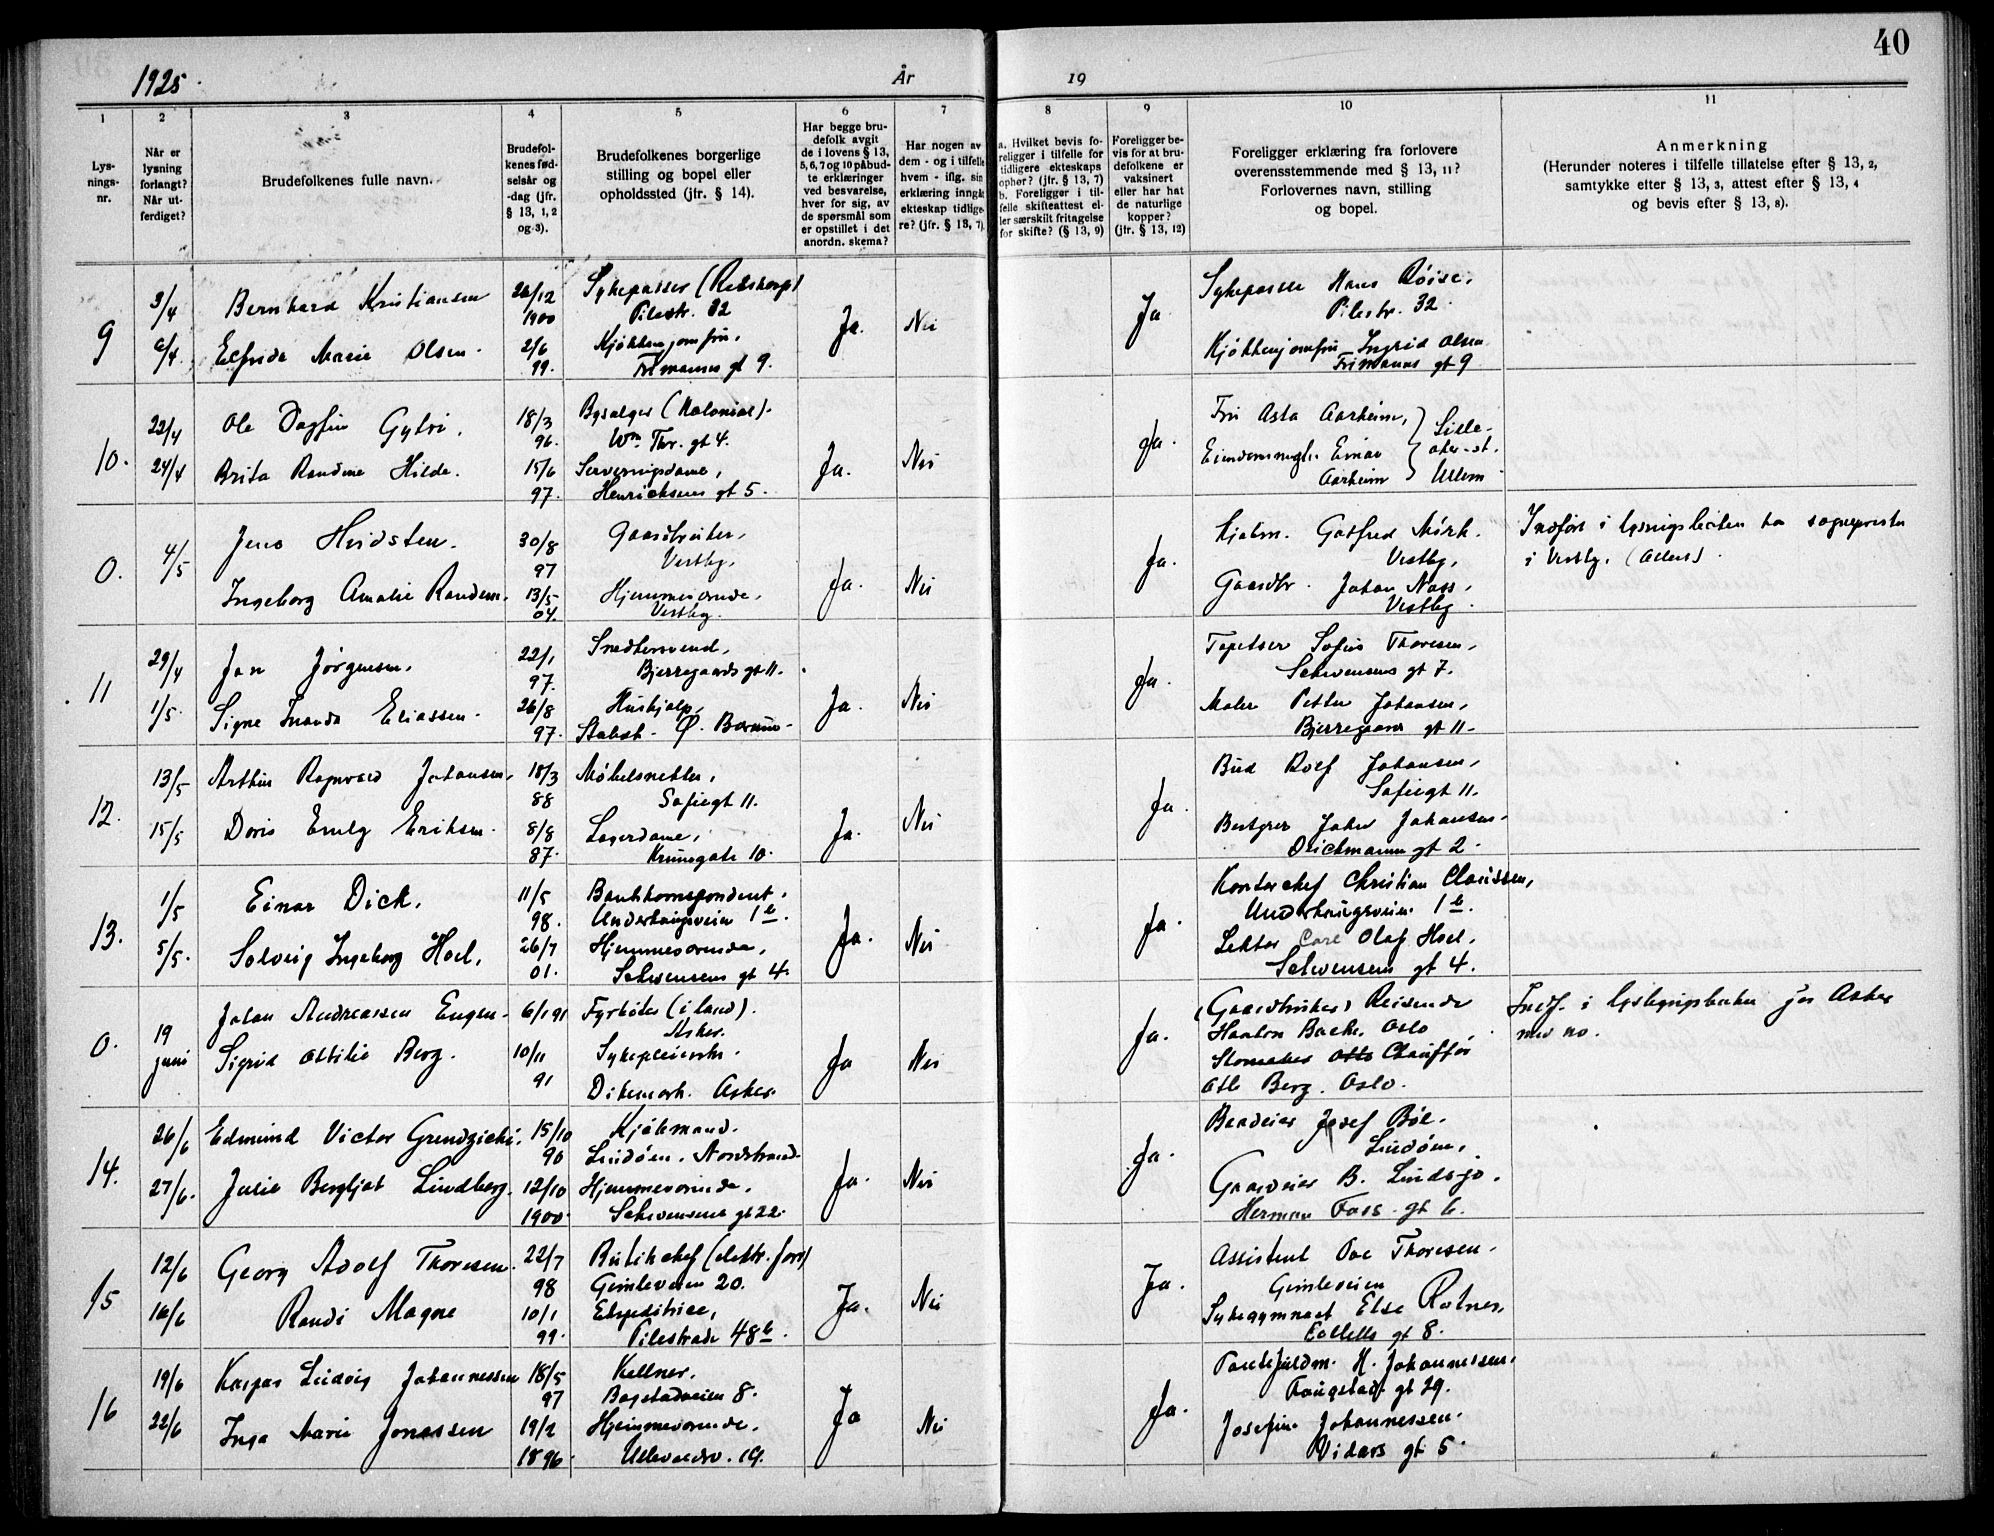 40
1925.
År
19
1
2
3
4
5
6
7
8
9
10
11
Lys-
nings-
nr.
Når er
lysning
forlangt?
Når ut-
ferdiget?
Brudefolkenes fulle navn.
Brudefol-
kenes fød-
selsår og
-dag (jfr.
§ 13, 1, 2
og 3).
Brudefolkenes borgerlige
stilling og bopel eller
opholdssted (jfr. § 14).
Har begge bru-
defolk avgit
de i lovens § 13,
5, 6, 7 og 10 påbud-
te erklæringer
ved besvarelse,
hver for sig, av
de spørsmål som
er opstillet i det
anordn. skema?
Har nogen av
dem - og i tilfelle
hvem - iflg. sin
erklæring inngåt
ekteskap tidlige-
re? (jfr. § 13, 7)
a. Hvilket bevis fo-
religger i tilfelle for
tidligere ekteskaps
ophør? (jfr. § 13, 7)
b. Foreligger i til-
felle skifteattest el-
ler særskilt fritagelse
for skifte? (§ 13, 9)
Foreligger be-
vis for at bru-
defolkene er
vaksinert
eller har hat
de naturlige
kopper?
(jfr. § 13, 12)
Foreligger erklæring fra forlovere
overensstemmende med § 13, 11?
Forlovernes navn, stilling
og bopel.
Anmerkning
(Herunder noteres i tilfelle tillatelse efter § 13, 2,
samtykke efter § 13, 3, attest efter § 13, 4
og bevis efter § 13, 8).
9
3/4
Bernhard Kristiansen
26/12
1900
Sykepasser
Pilestr. 32
Elfrida Marie Olsen.
2/6
99.
Kjøkkenjomfru,
Frimanns gt 9.
Ja.
Nei
Ja
Sykepasser Hans Røise,
Pilestr. 32.
Kjøkkenjomfru Ingrid Olsen
Frimanns gt 9
10.
22/4
24/4
Ole Dagfin Gylvi.
18/3
96.
(Kolonial).
Wm. Thr. gt 4.
Brita Randine Hilde.
15/6
97.
Serveringsdame,
Henrichsens gt 5.
Ja.
Nei
Ja.
Fru Asta Aarheim,
Einar
Aarheim
Lille-
Ullern
0.
4/5
Jens Hvidsten.
30/8
97
Gaardbruker,
Vestby.
Ingeborg Amalie Randem.
13/5
04.
Hjemmeværende,
Vestby.
Ja.
Nei
Ja.
Hjalm. Gotfred Mørk.
Vestby,
Gaardbr. Johan Nass,
Vestby.
Indført i lysningsboken hos sognepresten
i Vestby.
11
29/4
1/5.
Jan Jørgensen.
22/1
97.
Snedkersvend,
Bjerregaards gt 11.
Signe Eliassen.
26/8
97.
Hushjelp,
Stabæk. Ø. Bærum.
Ja.
Nei
Ja.
Tapetser Sofus Thoresen,
Schwensens gt 7.
Maler Petter Johansen,
Bjerregaards gt 11.
12.
13/5
15/5
Arthur Ragnvald Johansen,
18/3
88
Møbelsnekker,
Sofiegt 11.
Doris Emily Eriksen.
8/8
87.
Lagerdame,
10.
Ja.
Nei
Ja.
Bud Rolf Johansen,
Sofiegt 11.
Johan Johansen.
Deichmanns gt 2.
13.
1/5
5/5.
Einar Dick.
11/5
98.
Bankkorrespondent.
Underhaugsveien 1b.
Solveig Ingeborg Hoel.
26/7
01.
Hjemmeværende,
Schwensens gt 4.
Ja.
Nei
Ja.
Kontorchef Christian Clausen,
Underhaugsveien 1b.
Lektor Carl Olaf Hoel.
Schwensens gt 4.
0.
19
juni
Johan Andreassen Engen.
6/1 91
Fyrbøter (i land).
Asker.
Sigrid Ottilie Berg.
10/11
91
Sykepleierske.
Dikemark. Asker.
Ja
Nei
Ja.
(Gaardbruker) Reisende
Haakon Bache. Oslo
Chauffør
Otto Berg. Oslo.
Indf. i lysningsboken for Asker
med no.
14.
26/6
27/6.
Edmund Victor Grendzicki.
15/10
90
Kjøbmand.
Lindøen. Nordstrand
Julie Bergljot Lundberg.
12/10
1900.
Hjemmeværende.
Schwensens gt 22.
Ja.
Nei
Ja.
Josef Bøe.
Lindøen,
Gaardeier B. Lindsjø.
Herman Foss gt 6.
15
12/6
16/6
Georg Adolf Thoresen.
22/7
98
Butikchef (elektr. forr)
Gimleveien 20.
Randi Magne
10/1
99.
Ekspeditrice,
Pilestræde 48b.
Ja.
Nei
Ja.
Assistent Ove Thoresen.
Gimleveien
Sykegymnast Else Rotnes,
Colletts gt 8.
16
19/6
22/6
Kaspar Ludvig Johannessen
18/5
97
Kellner.
Bogstadveien 8.
Inga Marie Jonassen
19/2
1896.
Hjemmeværende.
Ullevoldsv. 19.
Ja
Nei
Ja.
H. Johannessen,
Fougstads gt 29.
Josefine Johannessen.
Vidars gt 5.